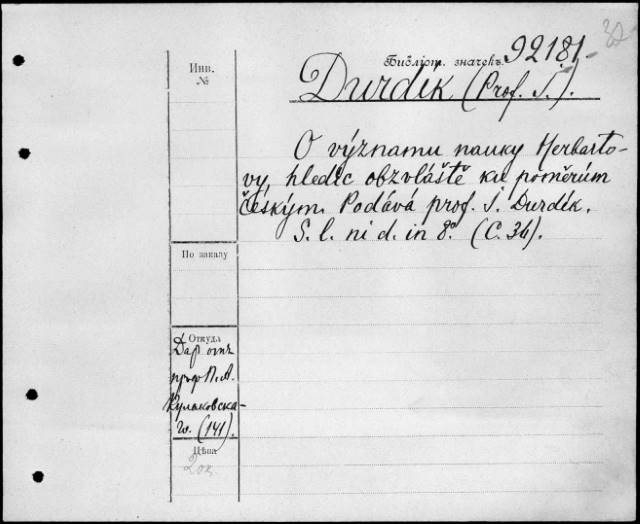 Библіот. значекъ 92181
Инв.
№
Durdík (Prof. J.).
O významu nauky Herbarto-
vy, hledíc obzvláště ku poměrům
českým. Podává prof. J. Durdík.
S. l. ni d. in 8º. (C. 36).
По заказу
Откуда
Даръ отъ
проф. П. А.
Кулаковска-
го. (141).
Цѣна